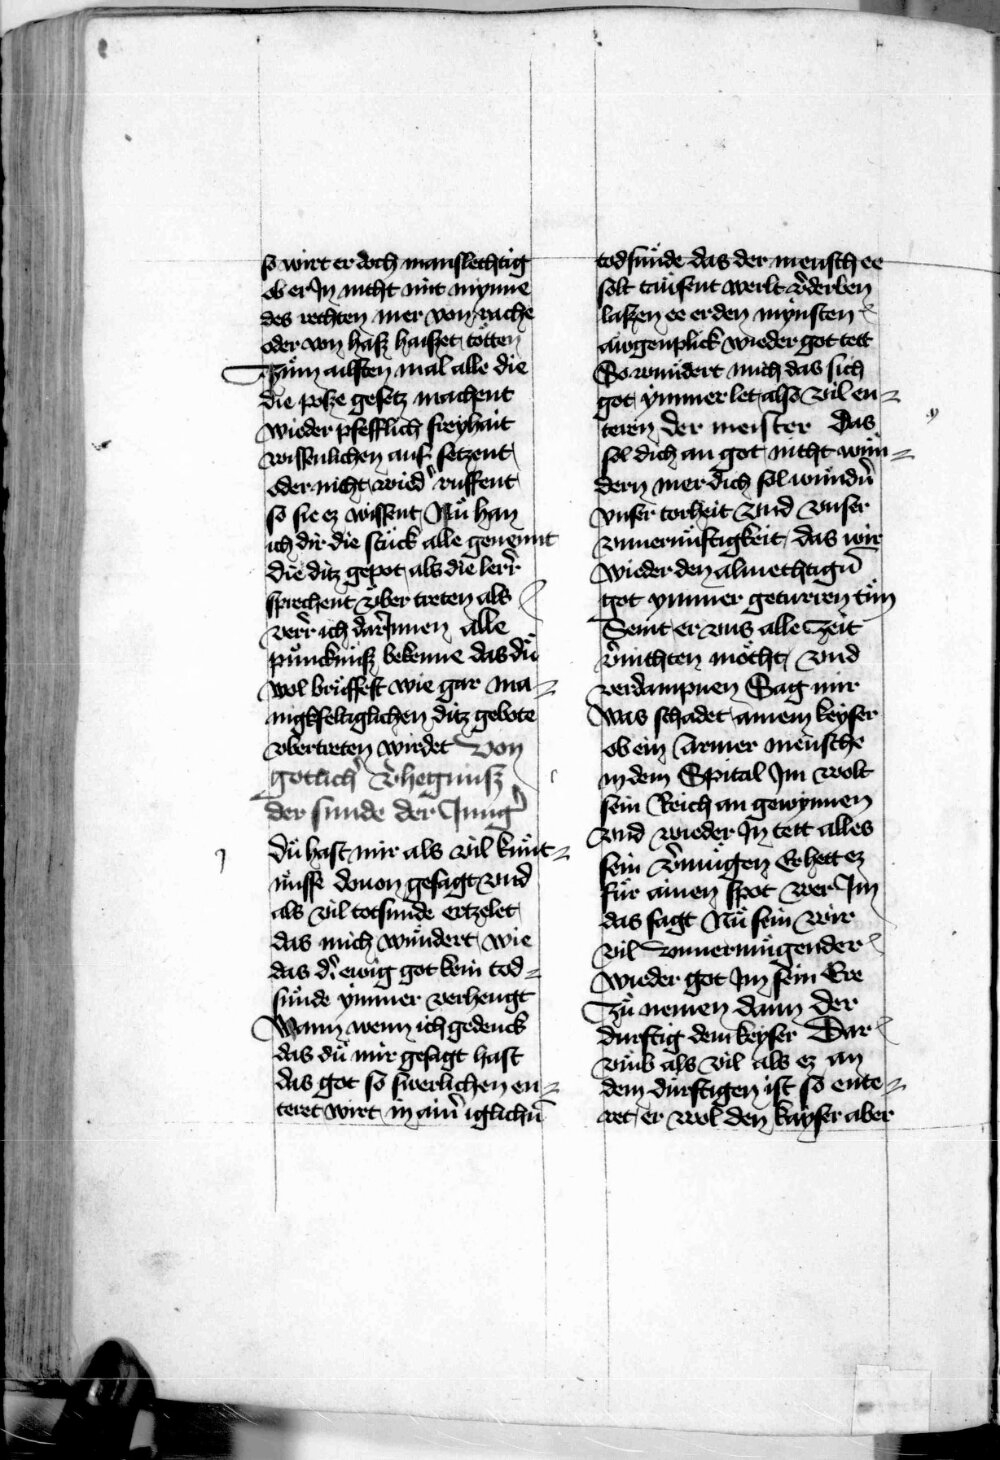 so wirt er doch manslechtig
ob er Jn nicht mit mynne
des rechten mer von rache
oder von hasz haiszet toͤtten
Zuͤm ailften mal alle die
die poͤsze gesetz machent
wieder pfefflich freyhait
wissenlichen auf setzent
oder nicht wied͛ ruffent
so sie ez wissent Nuͤ han
ich dir die stuͤck alle genennt
die ditz gepot als die lerr͛
sprechent uͤber treten als
verr͛ ich dar Jnnen alle
puͤncknisz bekenne das duͤ
wol bruͤffest wie gar ma⸗
nigkfeltiglichen ditz gebote
vbertreten wirdet Von
gotlich͛ v͛hegnusz
der sunde der Jung͛
duͤ hast mir als vil kuͤnt⸗
nuͤsse douon gesagt vnd
als vil totsunde ertzelet
das mich wuͤndert wie
das d͛ ewig got kein tod⸗
suͤnde ymmer verhengt
Wann wenn ich gedenck
das duͤ mir gesagt hast
das got so swerlichen en⸗
teret wirt in ain͛ iglichn̄
todsuͤnde das der mensch ee
solt tausent werlt v͛derben
laszen ee er den mynsten
augenplick wieder got tett
So wundert mich das sich
got ymmer let also vil en⸗
teren der meister Das
sol dich an got nicht wun⸗
dern mer dich sol wundn̄
vnser torheit vnd vnser
vnuernuͤftigkeit das wir
wieder den almechtign̄
got ymmer geturren tuͤn
Seint er vns alle zeit
v͛nichten moͤcht vnd
verdampnen Sag mir
Was schadet ainem keyser
ob ein armer mensche
in dem Spital Jm wolt
sein Reich an gewynnen
vnd wieder Jn tett alles
sein v͛muͤgen Er hett ez
fuͤr ainen spot wer Jm
das sagt Nuͤ sein wir
vil vnuermuͤgender
wieder got Jm sein Ere
zuͤ nemen dann der
durftig dem keyser Dar
vmb als vil als ez an
dem durftigen ist so ente⸗
ret er wol den kayser aber